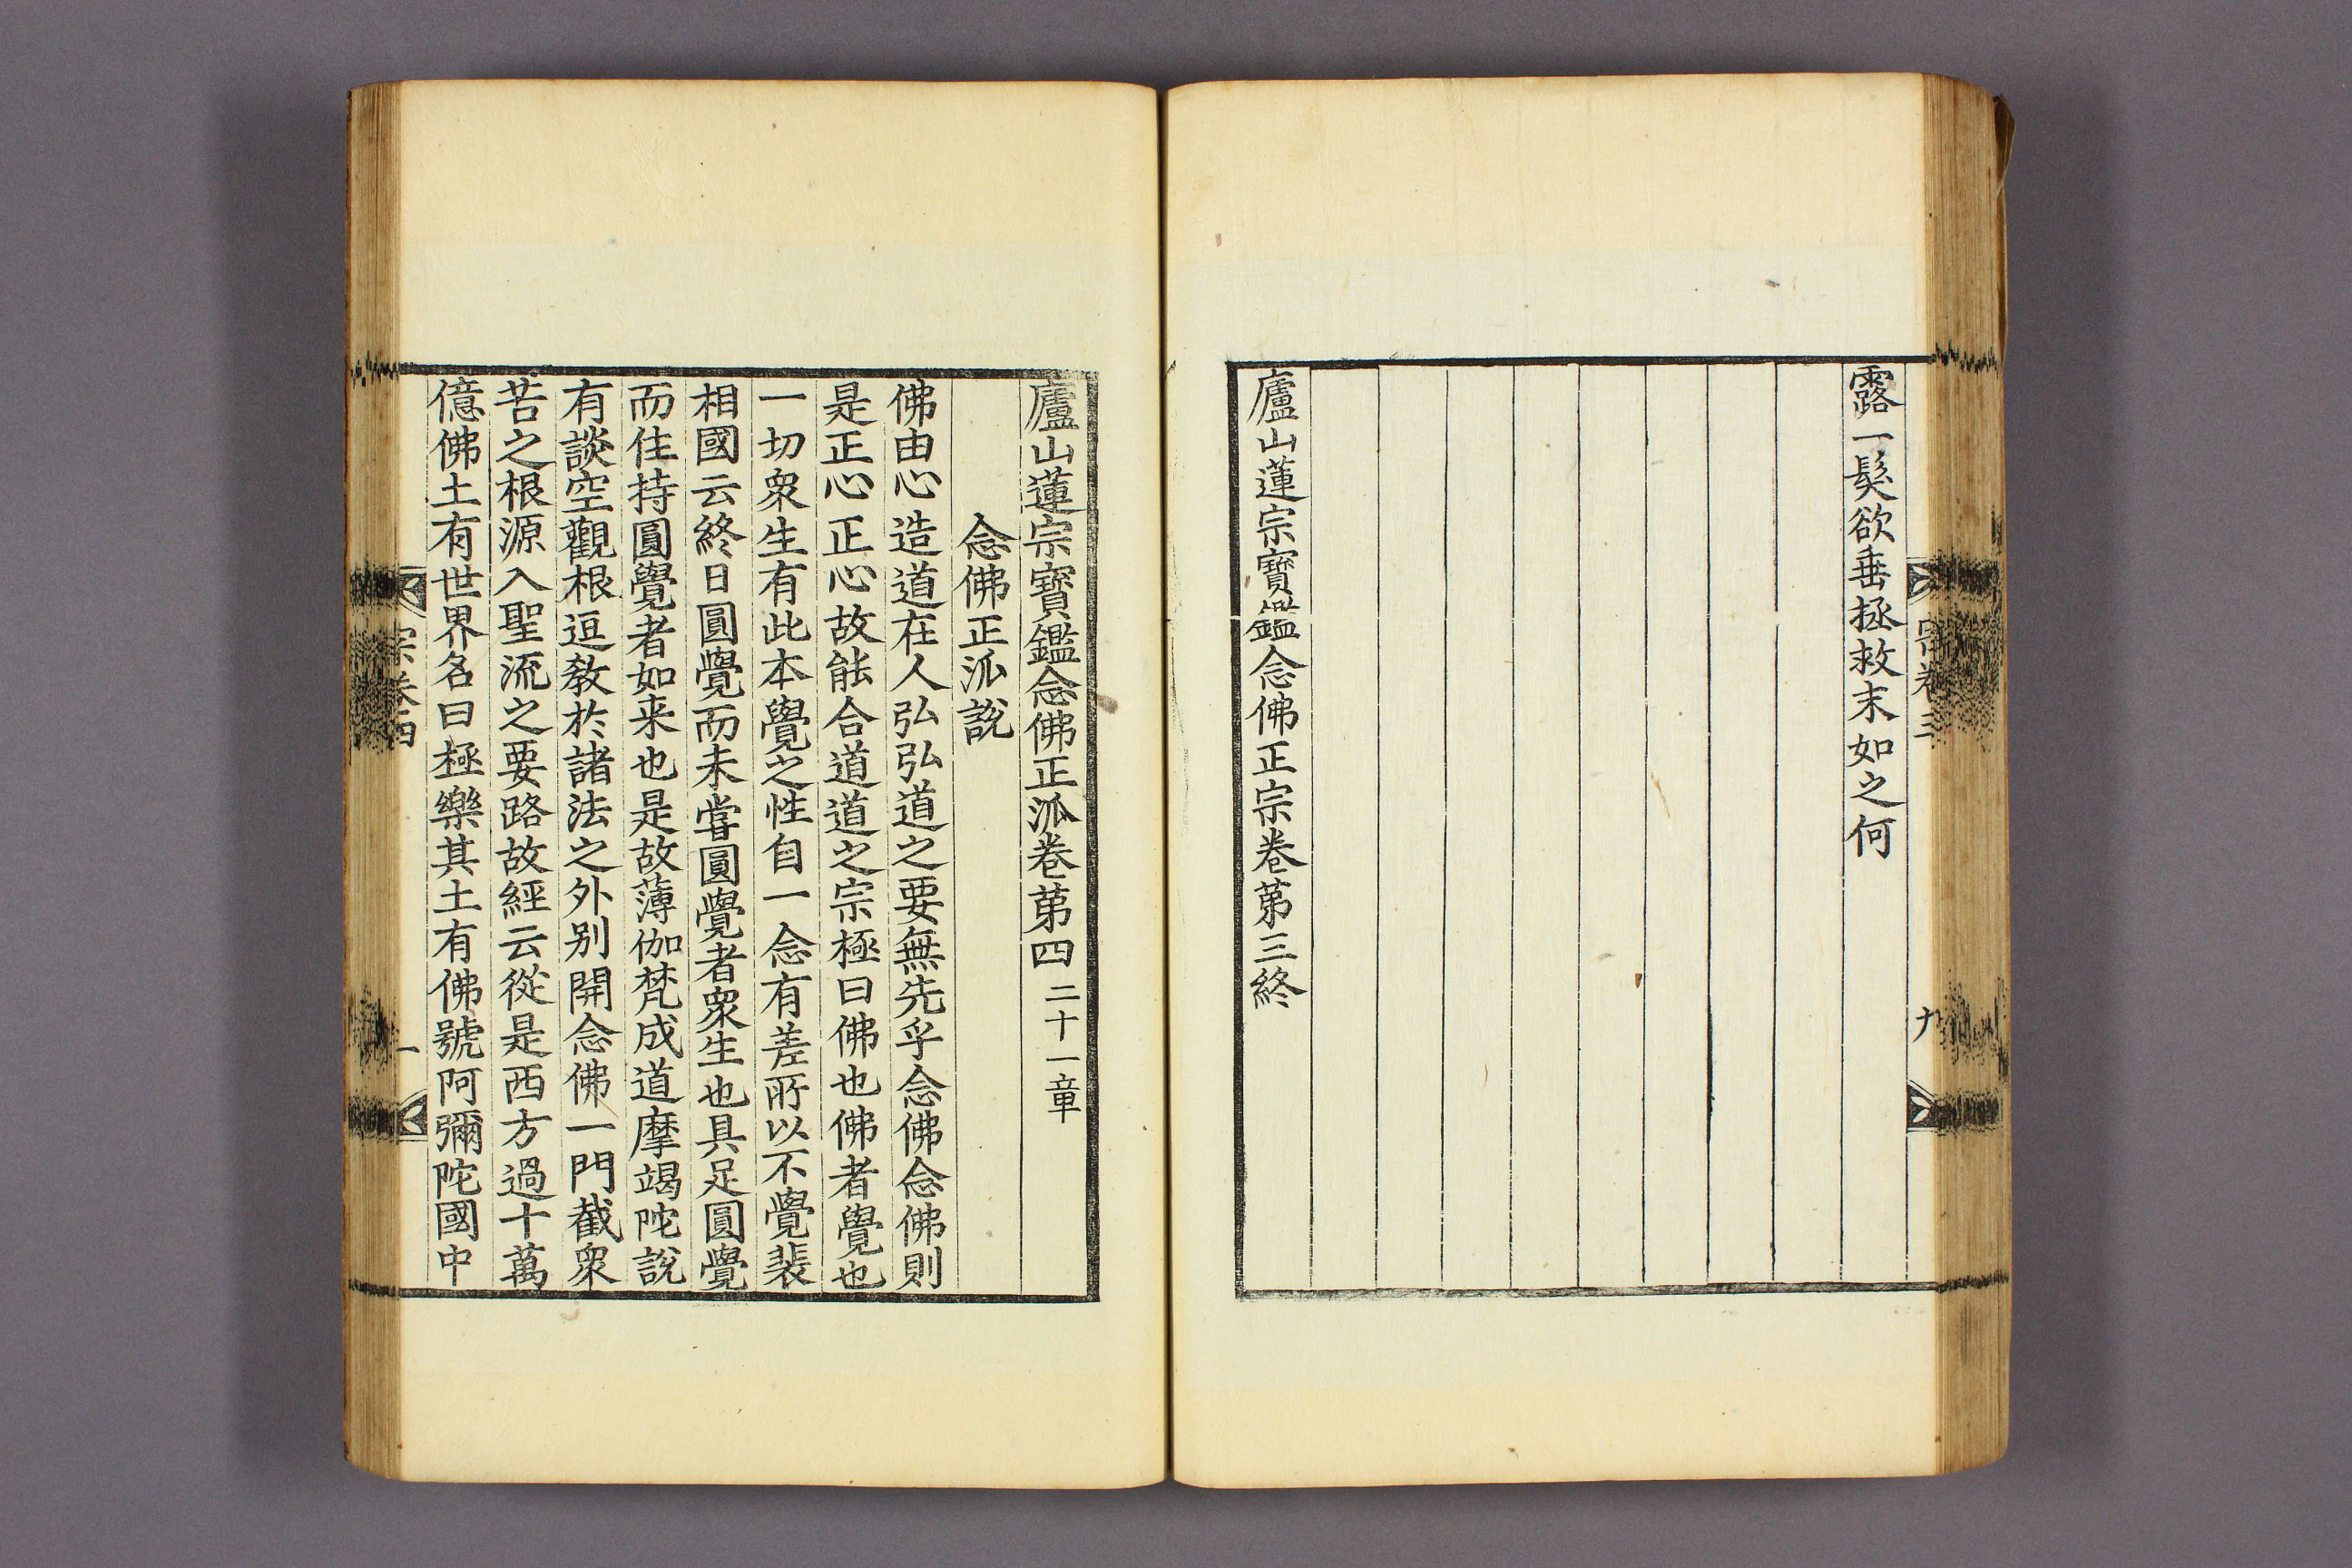 露一髮欲垂拯救末如之何
廬山蓮宗寶鑑念佛正宗卷苐三終
卷三
九
廬山蓮宗寶鑑念佛正𣲖卷苐四 二十一章
念佛正𣲖說
佛由心造道在人弘弘道之要無先乎念佛念佛則
是正心正心故能合道道之宗極曰佛也佛者覺也
一切衆生有此本覺之性自一念有差所以不覺裴
相國云終日圓覺而未甞圓覺者衆生也具足圓覺
而住持圓覺者如来也是故薄伽梵成道摩竭陀說
有談空觀根逗教於諸法之外别開念佛一門截衆
苦之根源入聖流之要路故經云從是西方過十萬
億佛土有世界名曰極樂其土有佛號阿彌陀國中
宗卷四
一